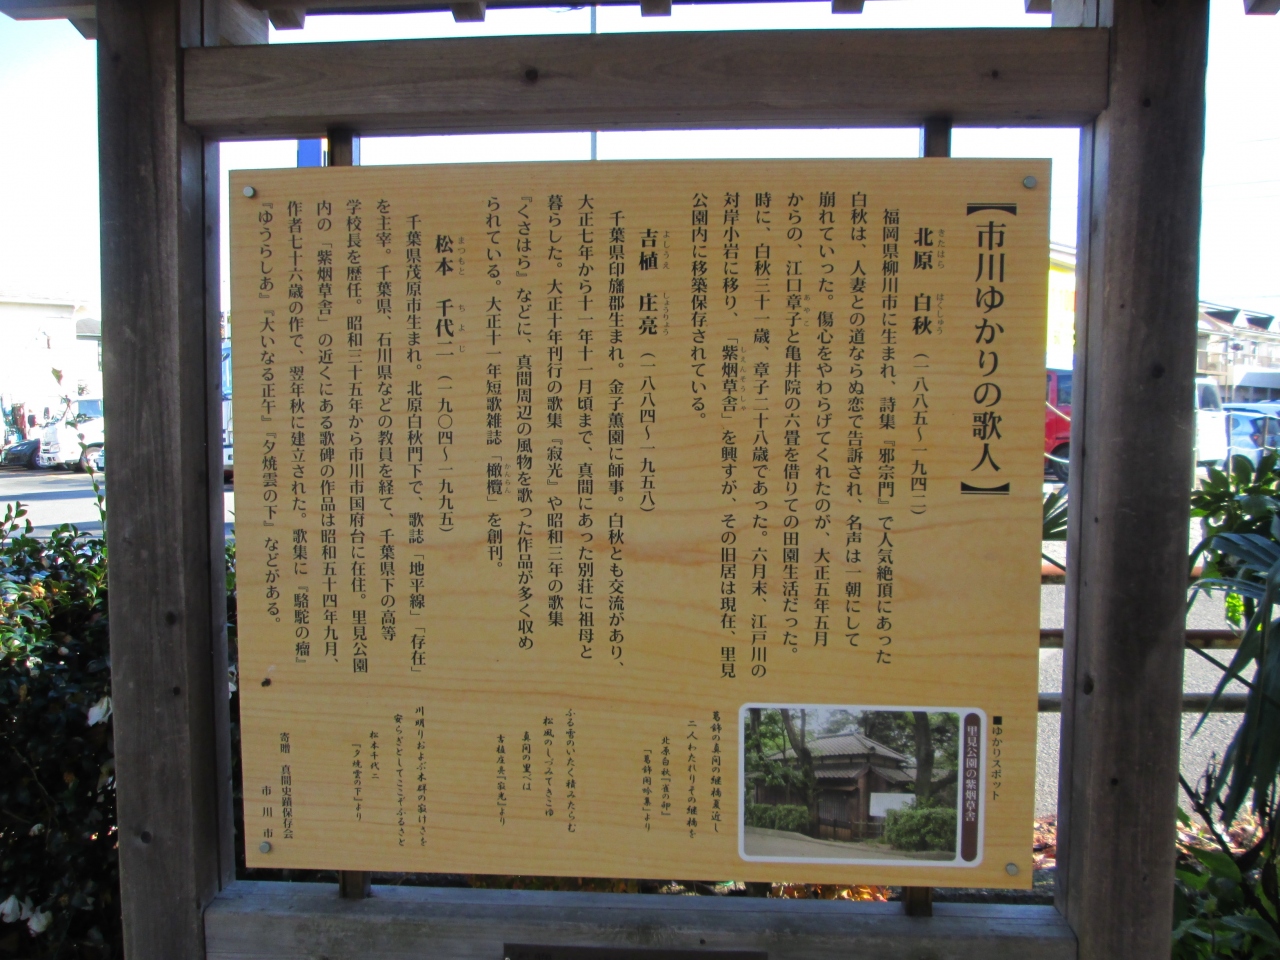 【市川ゆかりの歌人】
北原 白秋 （一八八五～一九四二）
きたはら はくしゅう
福岡県柳川市に生まれ、詩集『邪宗門』で人気絶頂にあった
白秋は、人妻との道ならぬ恋で告訴され、名声は一朝にして
崩れていった。傷心をやわらげてくれたのが、大正五年五月
からの、江口章子と亀井院の六畳を借りての田園生活だった。
あやこ
時に、白秋三十一歳、章子二十八歳であった。六月末、江戸川の
対岸小岩に移り、「紫烟草舎」を興すが、その旧居は現在、里見
しえんそうしゃ
公園内に移築保存されている。
吉植 庄亮 （一八八四～一九五八）
よしうえ しょうりょう
千葉県印旛郡生まれ。金子薫園に師事。白秋とも交流があり、
大正七年から十一年十一月頃まで、真間にあった別荘に祖母と
暮らした。大正十年刊行の歌集『寂光』や昭和三年の歌集
『くさはら』などに、真間周辺の風物を歌った作品が多く収め
られている。大正十一年短歌雑誌「橄欖」を創刊。
かんらん
松本 千代二 （一九〇四～一九九五）
まつもと ちよじ
千葉県茂原市生まれ。北原白秋門下で、歌誌「地平線」「存在」
を主宰。千葉県、石川県などの教員を経て、千葉県下の高等
学校長を歴任。昭和三十五年から市川市国府台に在住。里見公園
内の「紫烟草舎」の近くにある歌碑の作品は昭和五十四年九月、
作者七十六歳の作で、翌年秋に建立された。歌集に『駱駝の瘤』
『ゆうらしあ』『大いなる正午』『夕焼雲の下』などがある。
■ゆかりスポット
里見公園の紫烟草舎
葛飾の真間の継橋夏近し
二人わたれりその継橋を
北原白秋『雀の卵』
「葛飾閑吟集」より
ふる雪のいたく積みたらむ
松風のしづみてきこゆ
真間の里べは
吉植庄亮『寂光』より
川明りおよぶ木群の寂けさを
安らぎとしてここぞふるさと
松本千代二
『夕焼雲の下』より
寄贈 真間史蹟保存会
市川市